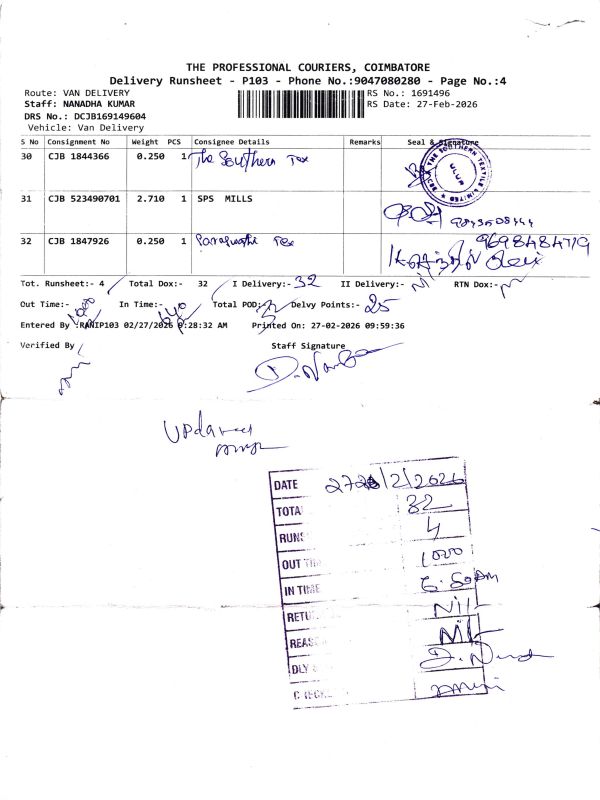 THE PROFESSIONAL COURIERS, COIMBATORE
Delivery Runsheet - P103 - Phone No.:9047080280 - Page No.:4
Route: VAN DELIVERY RS No.: 1691496
Staff: NANADHA KUMAR RS Date: 27-Feb-2026
DRS No.: DCJB169149604
Vehicle: Van Delivery
S No Consignment No Weight PCS Consignee Details Remarks Seal & Signature
30 CJB 1844366 0.250 1 The Southern Tex
31 CJB 523490701 2.710 1 SPS MILLS
32 CJB 1847926 0.250 1 Tex 9698484719
Tot. Runsheet:- 4 Total Dox:- 32 I Delivery:- 32 II Delivery:- RTN Dox:-
Out Time:- In Time:- Total POD:- Delvy Points:- 25
Entered By :RANIP103 02/27/2026 9:28:32 AM Printed On: 27-02-2026 09:59:36
Verified By Staff Signature
DATE /2/2026
TOTA 32
RUNS 4
OUT TIM 1000
IN TIME
RETU Nil
REAS Nil
DLY